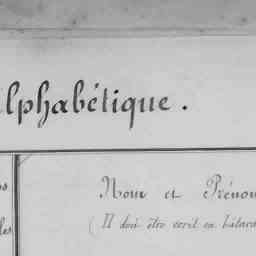 lphabétique.
Nom et Prénom
(Il doit être écrit en bâtard